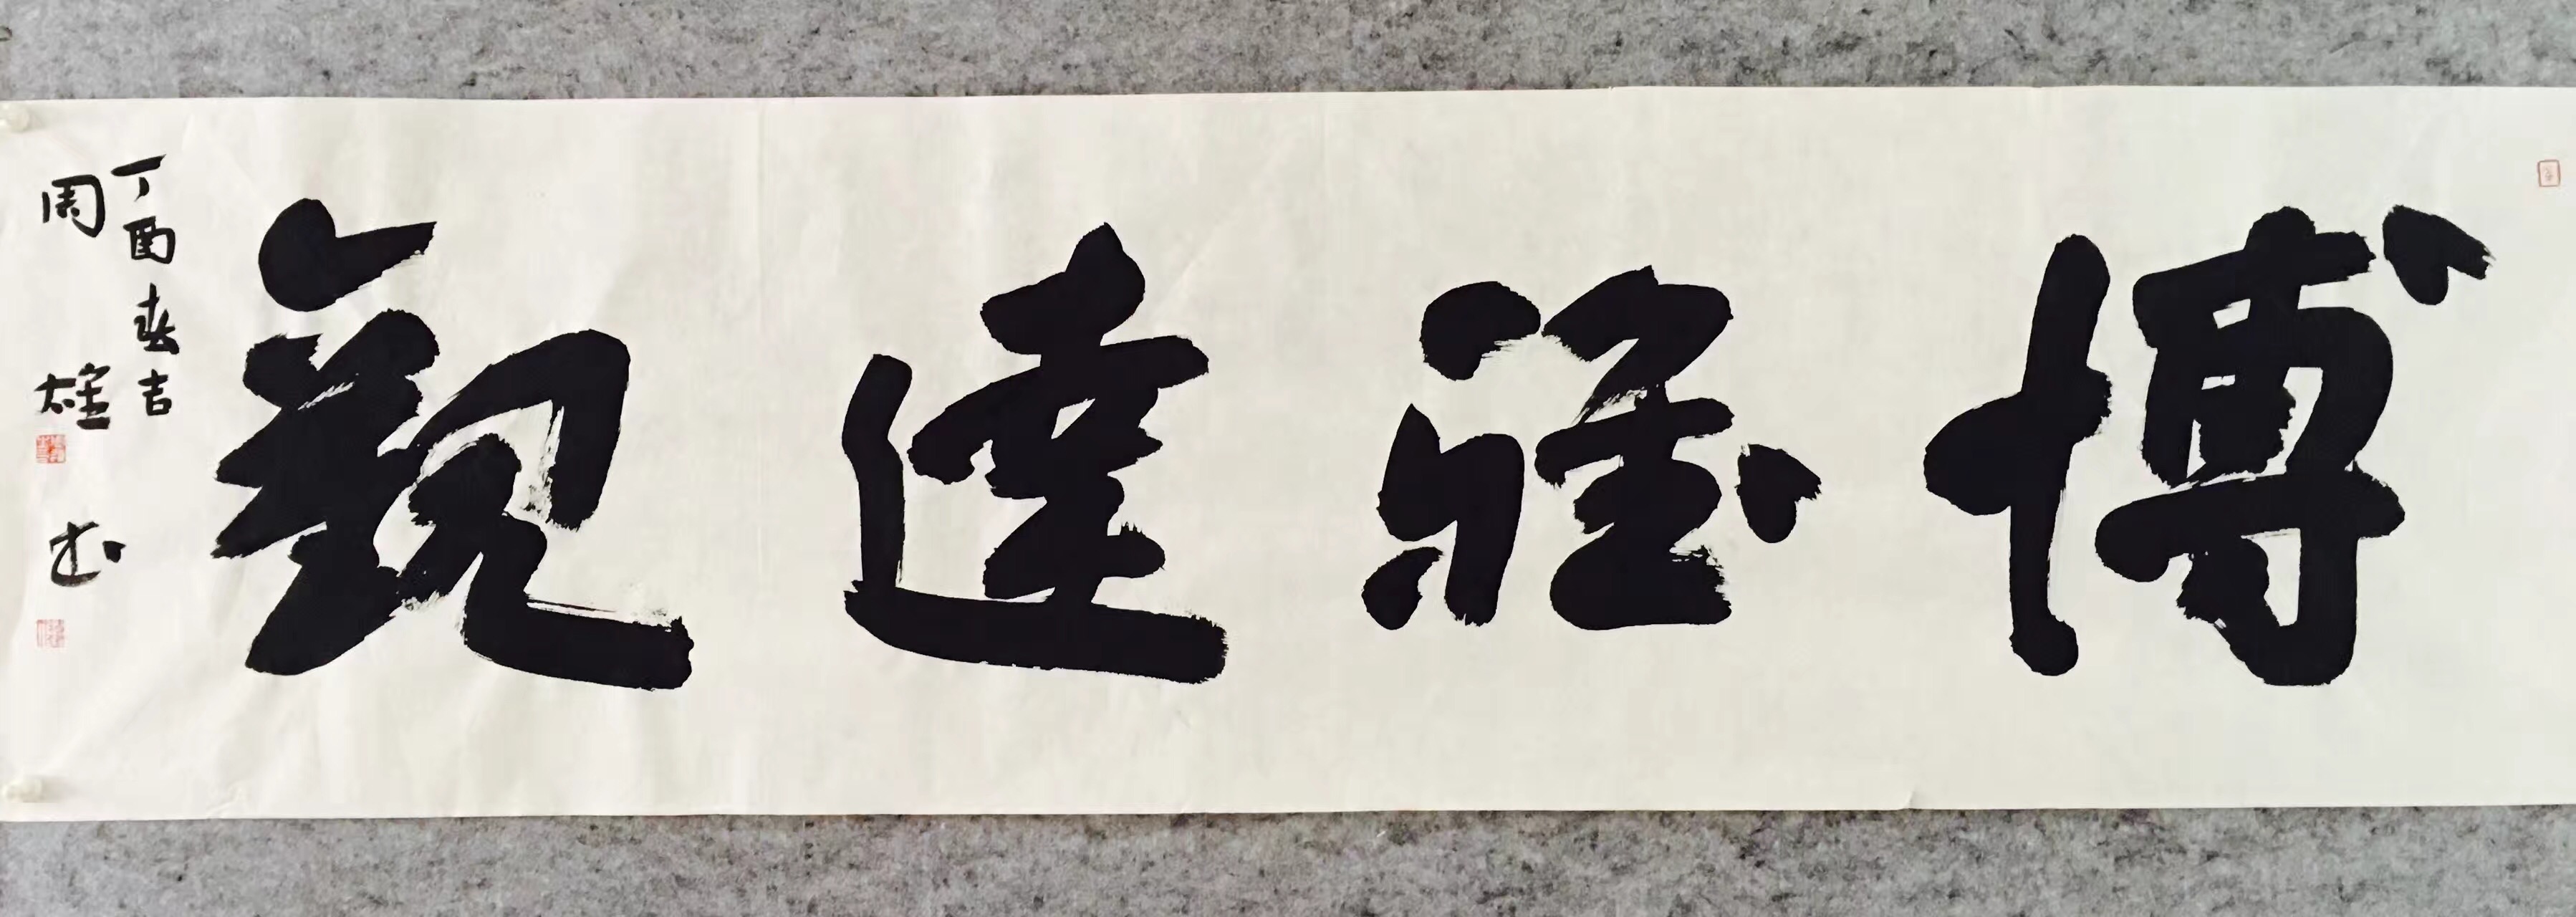 博雅達觀
丁酉春吉
周雄书